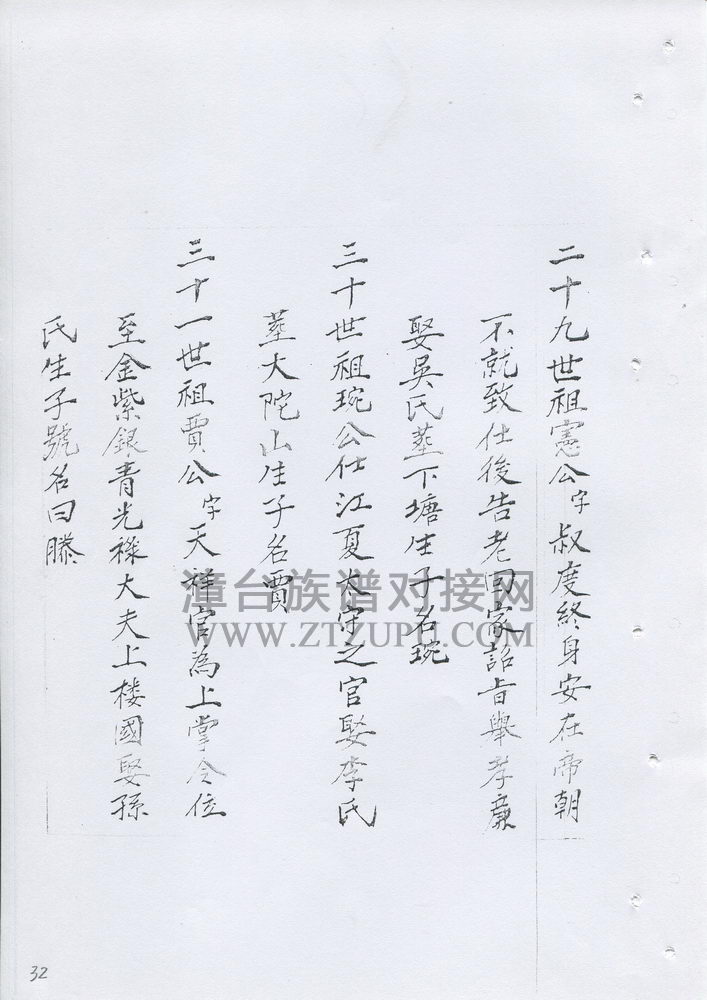 二十九世祖憲公字叔度終身安在帝朝
不就致仕後告老回家詔旨舉孝廉
娶吳氏葬下塘生子名琬
三十世祖琬公仕江夏太守之官娶李氏
葬大陀山生子名賈
三十一世祖賈公字天祥官為上掌令位
至金紫銀青光祿大夫上楼國娶孫
氏生子號名曰滕
漳台族谱对接网
WWW.ZTZUPU.COM
32